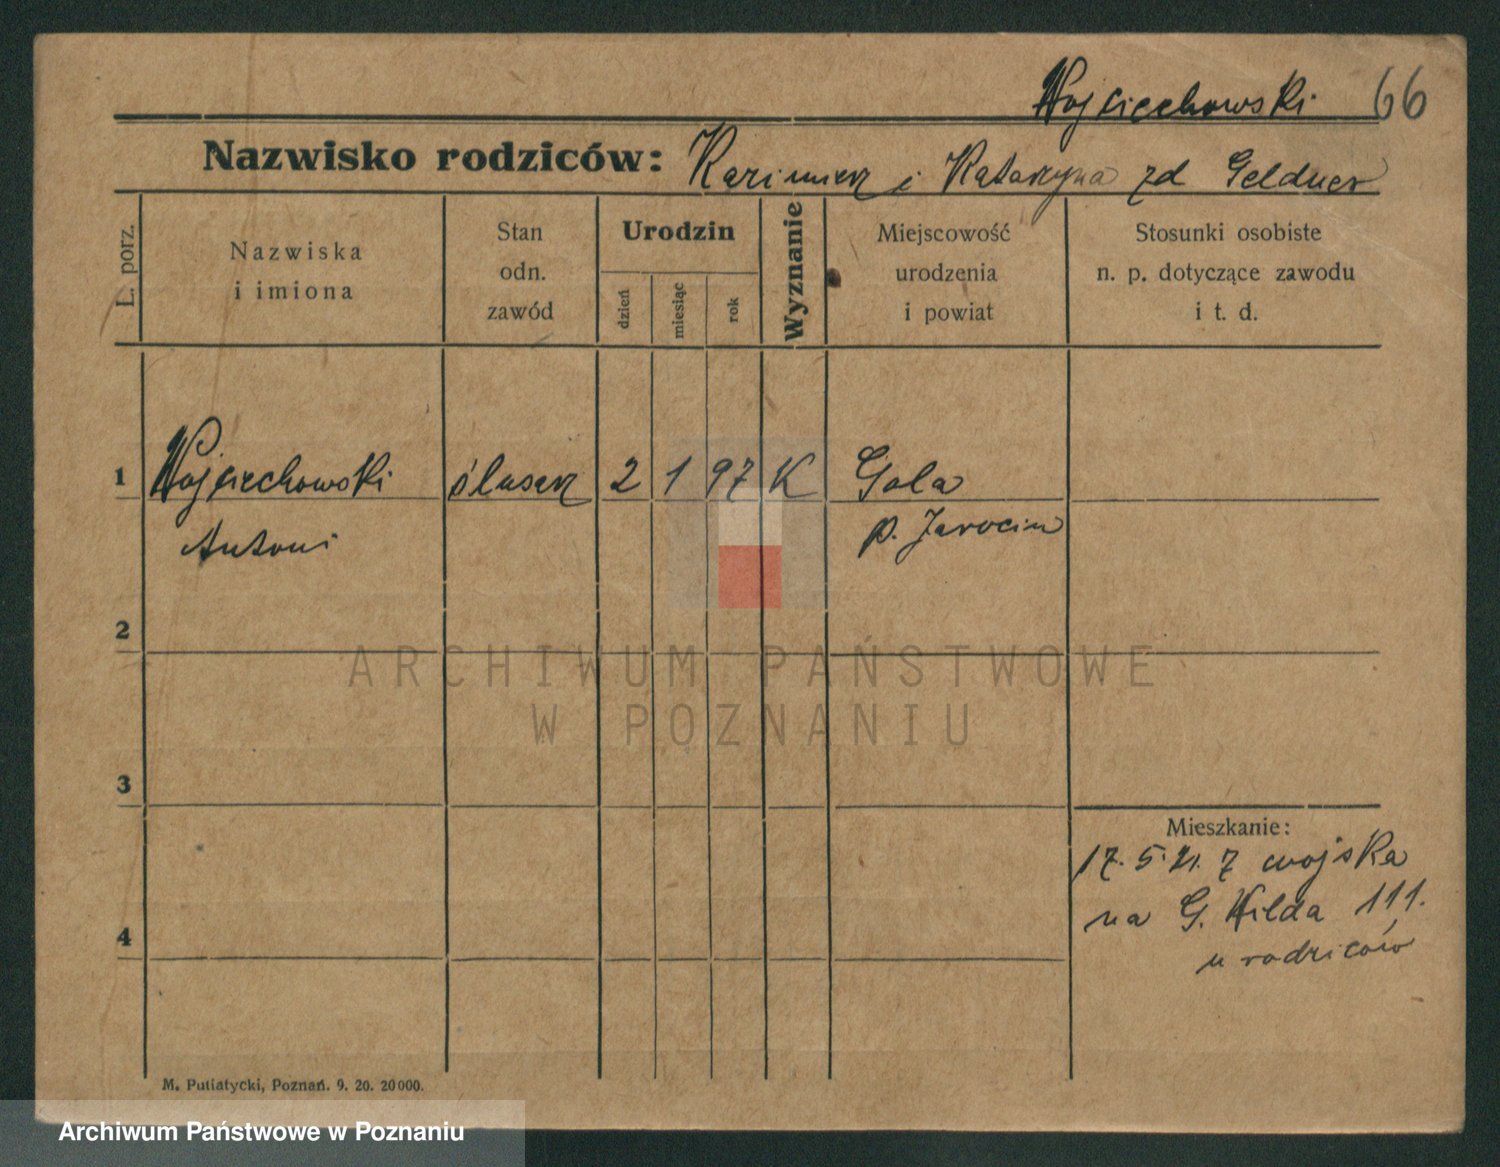 Wojciechowski 66
Nazwisko rodziców: Kazimierz i Katarzyna zd Geldner
L. porz.
Nazwiska
i imiona
Stan
odn.
zawód
Urodzin
dzień
miesiąc
rok
Wyznanie
Miejscowość
urodzenia
i powiat
Stosunki osobiste
n. p. dotyczące zawodu
i t. d.
1 Wojciechowski ślusarz 2 1 97 K Gola
Antoni p. Jarocin
2
ARCHIWUM PAŃSTWOWE
W POZNANIU
3
Mieszkanie:
17. 5. 21. z wojska
na G. Wilda 111.
u rodziców
4
M. Putiatycki, Poznań. 9. 20. 20000.
Archiwum Państwowe w Poznaniu